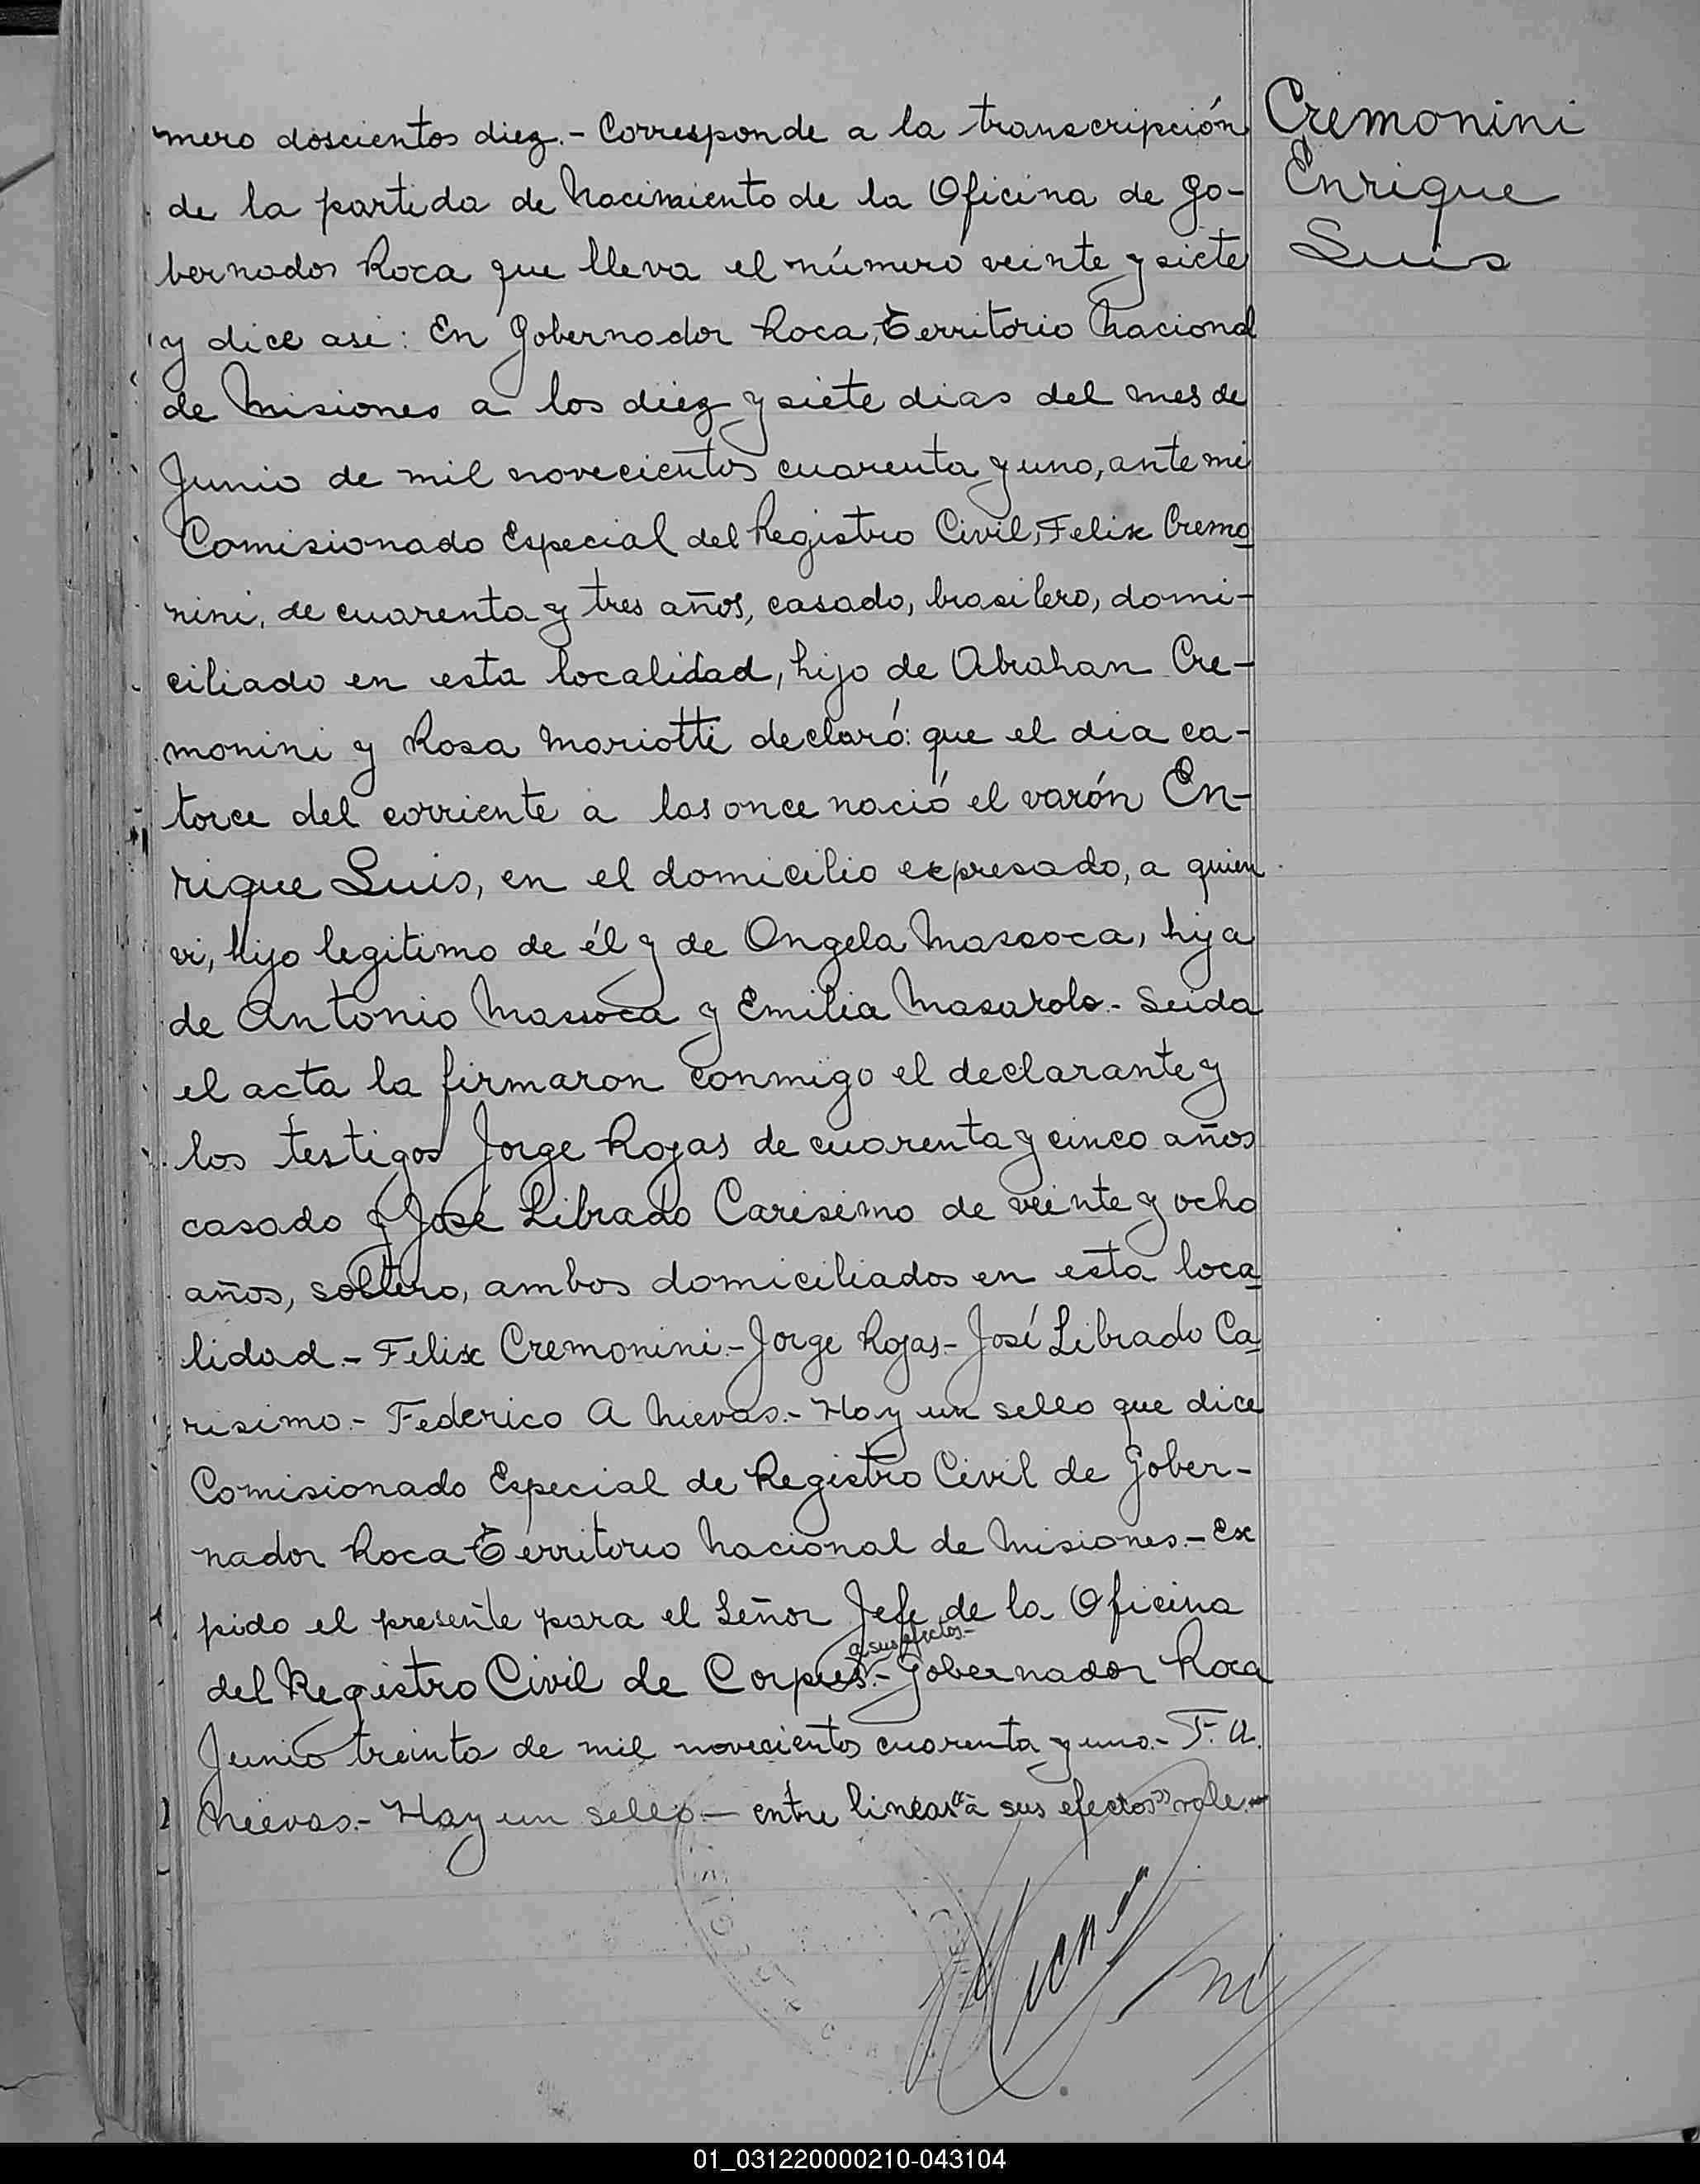 mero doscientos diez.- Corresponde a la transcripción
de la partida de Nacimiento de la Oficina de Go-
bernador Roca que lleva el número veinte y siete
y dice asi: En Gobernador Roca, Territorio Nacional
de Misiones a los diez y siete dias del mes de
Junio de mil novecientos cuarenta y uno, ante mi
Comisionado Especial del Registro Civil, Felix Cremo
nini, de cuarenta y tres años, casado, brasilero, domi-
ciliado en esta localidad, hijo de Abrahan Cre-
monini y Rosa Mariotti declaró: que el dia ca-
torce del corriente a las once nació el varón En-
rique Luis, en el domicilio expresado, a quien
vi, hijo legitimo de él y de Angela Massoca, hija
de Antonio Massoca y Emilia Masarolo.- Leida
el acta la firmaron conmigo el declarante y
los testigos Jorge Rojas de cuarenta y cinco años
casado y José Librado Carisimo de veinte y ocho
años, soltero, ambos domiciliados en esta loca
lidad.- Felix Cremonini.- Jorge Rojas- José Librado Ca
risimo.- Federico A Nievas.- Hay un sello que dice
Comisionado Especial de Registro Civil de Gober-
nador Roca Territorio Nacional de Misiones.- Ex
pido el presente para el Señor Jefe de la Oficina
a sus efectos.-
del Registro Civil de Corpus.- Gobernador Roca
Junio treinta de mil novecientos cuarenta y uno.- F. A.
Nievas.- Hay un sello.- entre lineas "a sus efectos" vale.-
Cremonini
Enrique
Luis
01_031220000210-043104